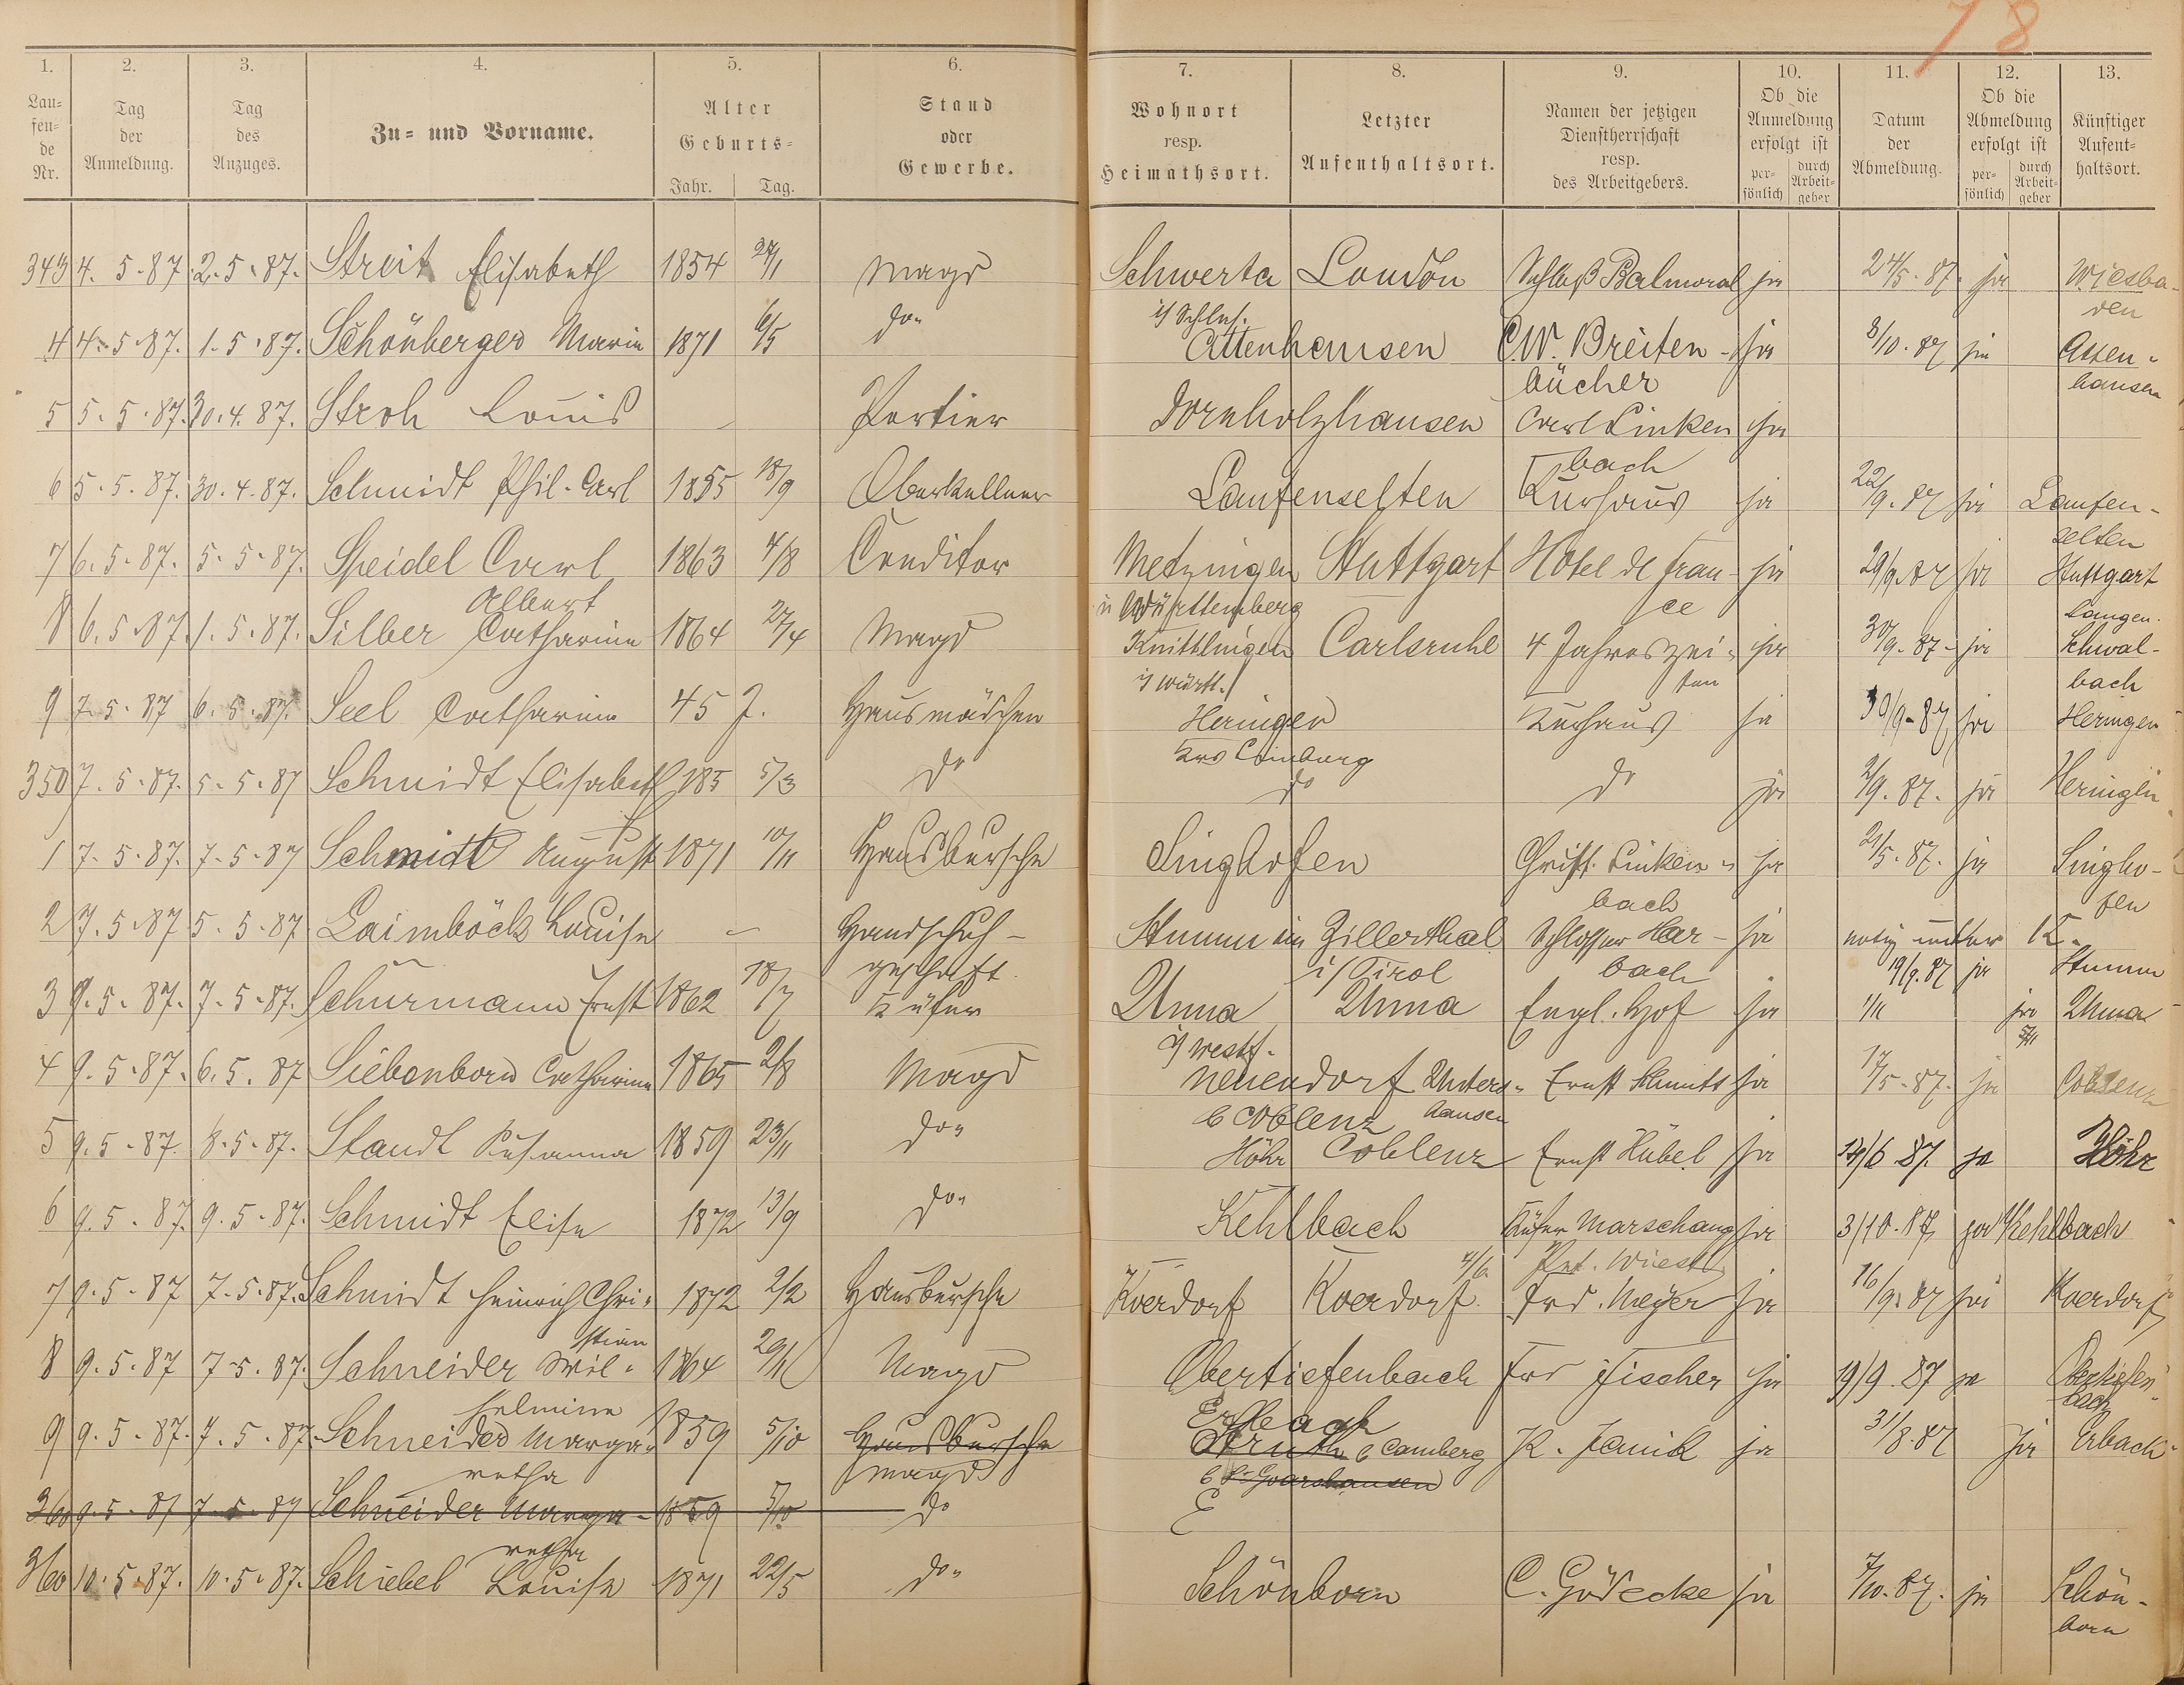 78
1. 2. 3. 4. 5. 6. 7. 8. 9. 10. 11. 12. 13.
Laufende Nr. Tag der Anmeldung. Tag des Anzuges. Zu- und Vorname. Alter Geburts- Jahr. Tag. Stand oder Gewerbe. Wohnort resp. Heimathsort. Letzter Aufenthaltsort. Namen der jetzigen Dienstherrschaft resp. des Arbeitgebers. Ob die Anmeldung erfolgt ist persönlich durch Arbeitgeber Datum der Abmeldung. Ob die Abmeldung erfolgt ist persönlich durch Arbeitgeber Künftiger Aufenthaltsort.
343 4. 5. 87 2. 5. 87. Streit Elisabeth 1854 27/1 Magd Schwerta London Schloß Balmoral ja 24/5. 87. ja Wiesba-
i/ Schles. den
4 4. 5. 87. 1. 5. 87. Schönberger Maria 1871 6/5 do" Attenhausen C.W. Breiten- ja 8/10. 87 ja Atten-
bücher hausen
5 5. 5. 87. 30. 4. 87. Stroh Louis — Portier Dornholzhausen Carl Linken ja
bach
6 5. 5. 87. 30. 4. 87. Schmidt Phil. Carl 1855 18/9 Oberkellner Laufenselten Kurhaus ja 22/9. 87 ja Laufen-
selten
7 6. 5. 87. 5. 5. 87. Speidel Carl 1863 4/8 Conditor Metzingen Stuttgart Hotel de Fran- ja 29/9. 87 ja Stuttgart
Albert Württemberg ce
8 6. 5. 87. 1. 5. 87. Silber Catharina 1864 27/4 Magd Knittlingen Carlsruhe 4 Jahreszei- ja 30/9. 87. ja Langen-
i/ Württ. ten Schwal-
bach
9 7. 5. 87 6. 5. 87. Seel Catharina 45 J. Hausmädchen Heringen Kurhaus ja 30/9. 87 ja Heringen
Krs Limburg
350 7. 5. 87. 5. 5. 87 Schmidt Elisabeth 185 5/3 do do do ja 2/9. 87. ja Heringen
1 7. 5. 87. 7. 5. 87 Schmidt August 1871 10/11 Hausbursche Singhofen Christ. Linken- ja 21/5. 87. ja Singho-
bach fen
2 7. 5. 87 5. 5. 87 Laimböck Louise — Handschuh- Stumm im Zillerthal Schlosser Har- ja notiz unter K.
geschäft i/ Tirol bach 19/9. 87 ja Stumm
3 9. 5. 87. 7. 5. 87. Schürmann Ernst 1862 18/7 Küfer Unna Unna Engl. Hof ja 1/11 ja Unna
i/ Westf.
4 9. 5. 87. 6. 5. 87 Siebenborn Catharina 1865 2/8 Magd Neuendorf Unters- Ernst Schmitt ja 17/5. 87. ja Coblenz
b Coblenz hausen
5 9. 5. 87. 8. 5. 87. Staudt Susanna 1859 23/11 do" Höhr Coblenz Ernst Hübel ja 6 87. ja Höhr
6 9. 5. 87. 9. 5. 87. Schmidt Elise 1872 13/9 do" Kehlbach Küfer Marschang ja 3/10. 87 ja Kehlbach
4/6. Pet. Wiest
7 9. 5. 87 7. 5. 87. Schmidt Heinrich Chri- 1872 2/2 Hausbursche Kördorf Kördorf Frd. Meyer ja 16/9. 87 ja Kördorf
stian
8 9. 5. 87 7. 5. 87. Schneider Wil- 1864 29/11 Magd Obertiefenbach Frd Fischer ja 19/9. 87 ja Obertiefen-
helmine bach
9 9. 5. 87. 7. 5. 87. Schneider Marga- 1859 5/10 Hausbursche Erbach
retha Magd Struth b Camberg K. Janik ja 31/8. 87 ja Erbach
b St. Goarshausen
360 9. 5. 87 7. 5. 87 Schneider Marga- 1859 5/10 do E
retha
360 10. 5. 87. 10. 5. 87. Schiebel Louise 1871 22/5 do" Schönborn C. Gödecke ja 7/10. 87. ja Schön-
born